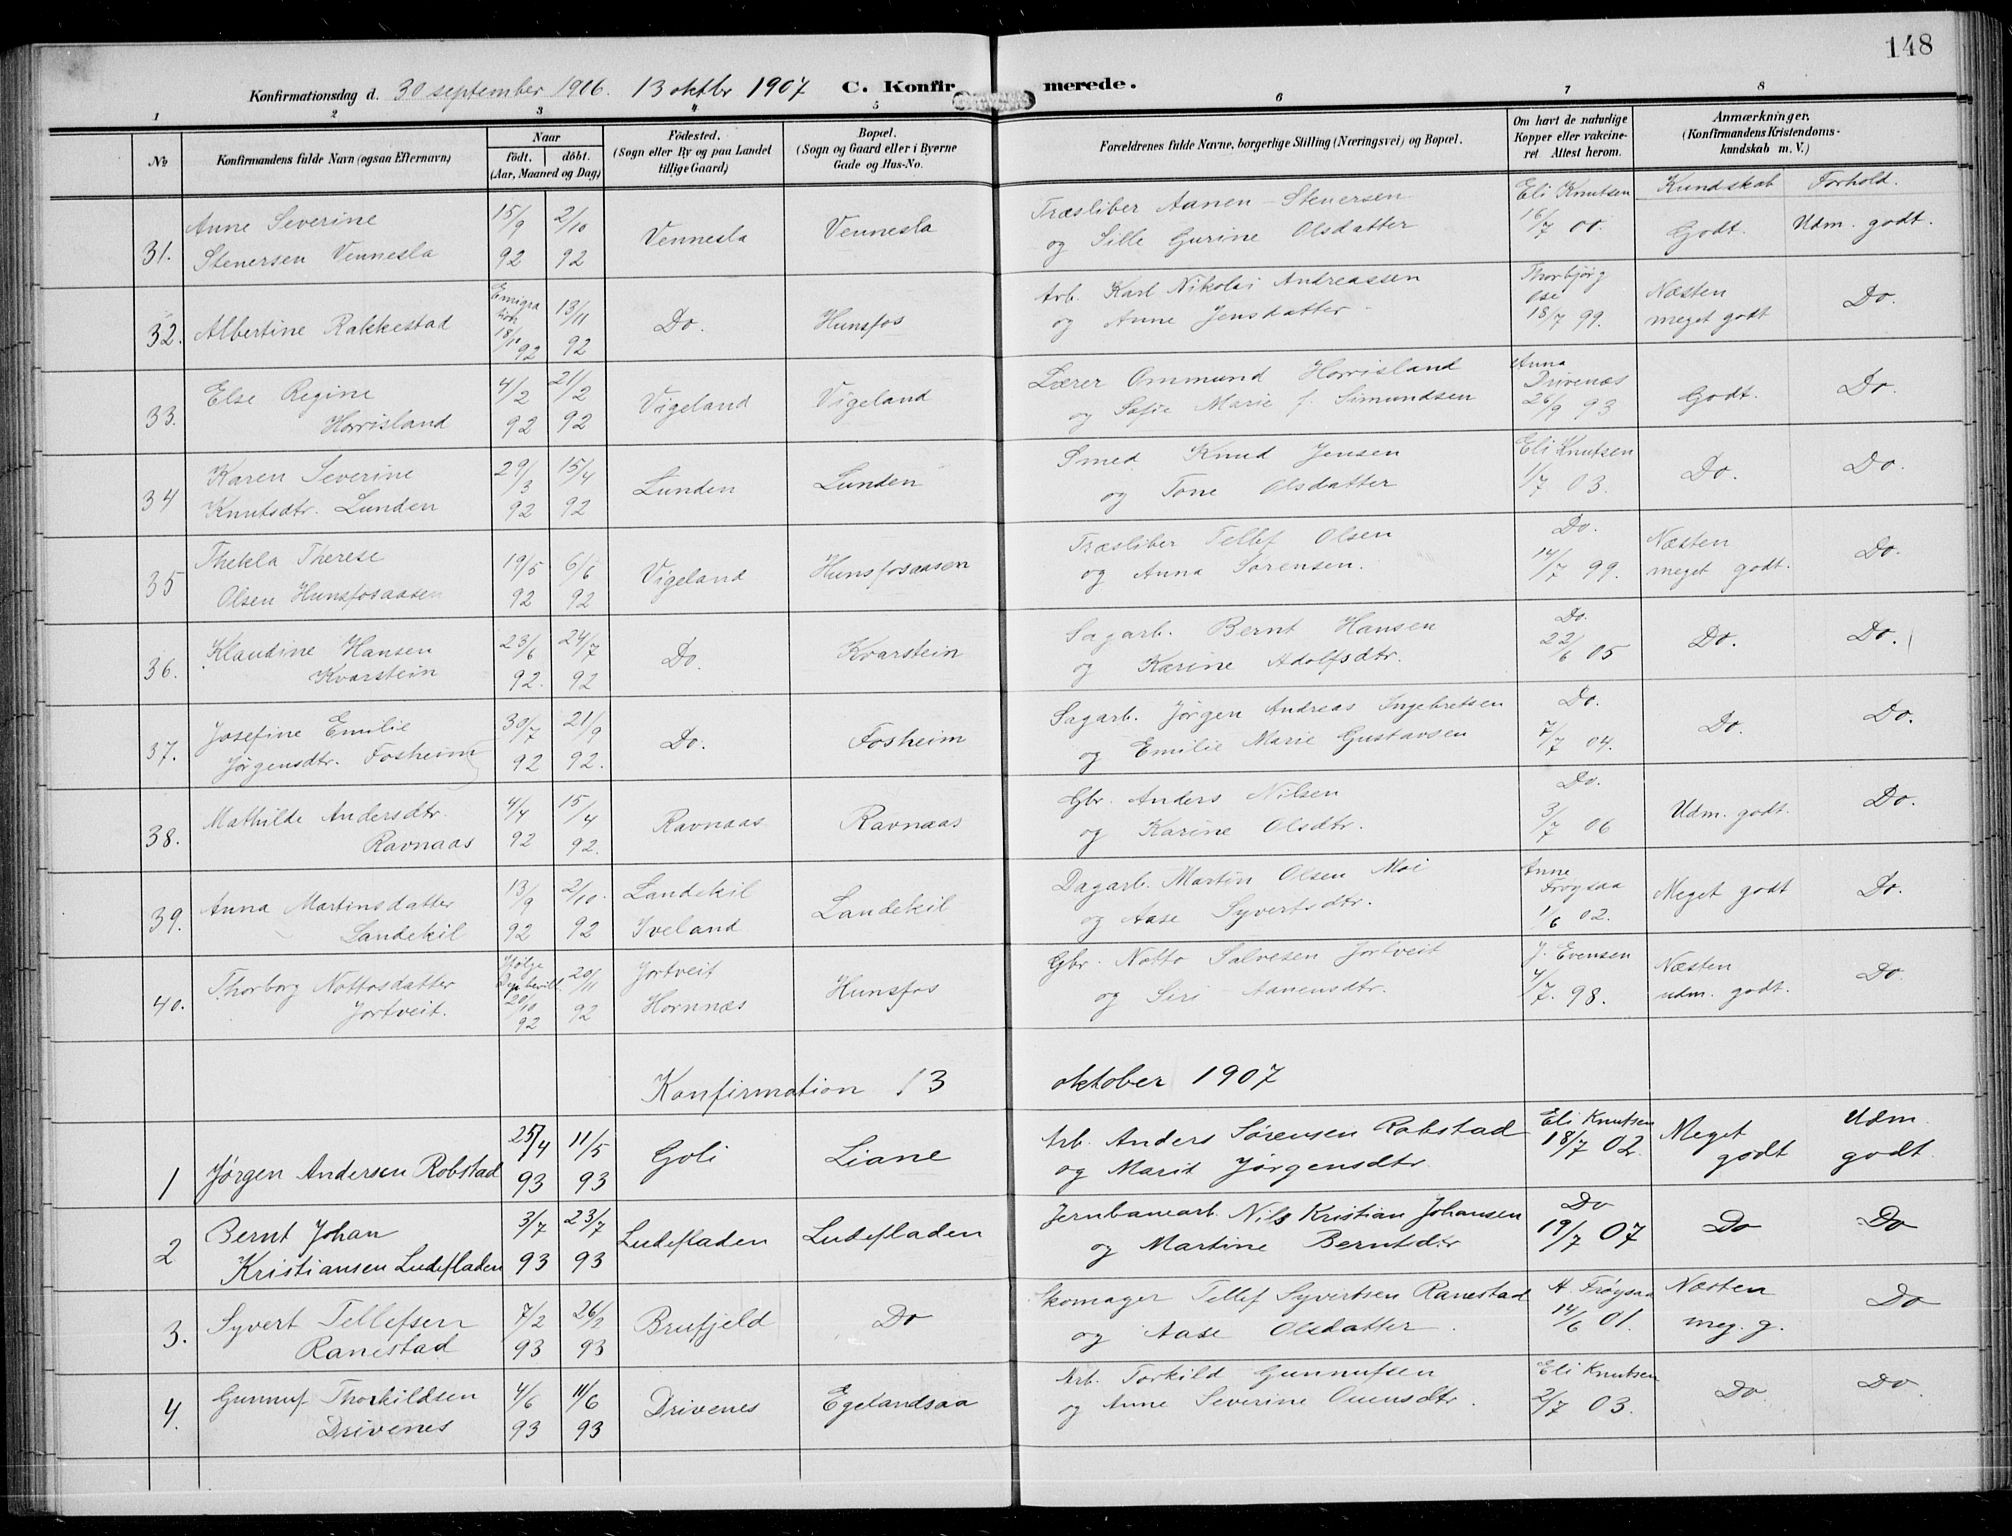 148
Konfirmationsdag d. 30 september 1906. 13 oktbr 1907 C. Konfirmerede.
1 2 3 4 5 6 7 8
No
Konfirmandens fulde Navn (ogsaa Efternavn)
Naar
født. døbt.
(Aar, Maaned og Dag)
Fødested.
(Sogn eller By og paa Landet
tillige Gaard)
Bopæl.
(Sogn og Gaard eller i Byerne
Gade og Hus-No.
Forældrenes fulde Navne, borgerlige Stilling (Næringsvei) og Bopæl.
Om havt de naturlige
Kopper eller vakcine-
ret Attest herom.
Anmærkninger.
(Konfirmandens Kristendoms-
kundskab m. V.)
Kundskab Forhold.
31. Anne Severine
Stenersen Vennesla
15/9 92
2/10 92
Vennesla
Vennesla
Træsliber Aanen Stenersen
og Sille Gurine Olsdatter
Eli Knutsen
16/7 00.
Godt.
Udm. godt.
32. Albertine Rakkestad
18/10 92
13/11 92
Do.
Hunsfos
Arb. Karl Nikolai Andreassen
og Anne Jensdatter
Thorbjørg
Ose
18/7 99.
Næsten
meget godt
Do.
33. Else Regine
Horrisland
4/2 92
21/2 92
Vigeland
Vigeland
Lærer Ommund Horrisland
og Sofie Marie f. Simundsen
Anna
Drivenæs
26/9 93
Godt.
Do.
34 Karen Severine
Knutsdtr. Lunden
29/3 92
15/4 92
Lunden
Lunden
Smed Knud Jensen
og Tone Olsdatter
Eli Knutsen
1/7 03.
Do.
Do.
35 Thekla Therese
Olsen Hunsfosaasen
19/5 92
6/6 92
Vigeland
Hunsfosaasen
Træsliber Tellef Olsen
og Anna Sørensen.
Do.
14/7 99.
Næsten
meget godt.
Do.
36. Klaudine Hansen
Kvarstein
23/6 92.
24/7 92
Do.
Kvarstein
Sagarb. Bernt Hansen
og Karine Adolfsdtr.
Do.
22/6 05
Do.
Do.
37. Josefine Emilie
Jørgensdtr. Fosheim
30/7 92
21/9 92.
Do.
Fosheim
Sagarb. Jørgen Andreas Ingebretsen
og Emilie Marie Gustavsen
Do.
7/7 04.
Do.
Do.
38. Mathilde Andersdtr.
Ravnaas
4/4 92
15/4 92.
Ravnaas
Ravnaas
Gbr. Anders Nilsen
og Karine Olsdtr.
Do.
3/7 06
Udm. godt.
Do.
39. Anna Martinsdatter
Landekil
13/9 92
2/10. 92
Landekil
Iveland
Landekil
Dagarb. Martin Olsen Moi
og Aase Syvertsdtr.
Anne
Frøysaa
1/6 02.
Meget godt
Do.
40. Thorborg Nottosdatter
Jortveit.
Ifølge
20/10 92
20/11 92
Jortveit
Hornnæs
Hunsfos
Gbr. Notto Salvesen Jortveit
og Siri Aanensdtr.
J. Evensen
4/7. 98.
Næsten
udm. godt.
Do.
Konfirmation 13 oktober 1907
1 Jørgen Andersen Robstad
25/4 93
11/5 93
Goli
Liane
Arb. Anders Sørensen Robstad
og Marit Jørgensdtr.
Eli Knutsen
18/7 02.
Meget
godt
Udm.
godt.
2 Bernt Johan
Kristiansen Ludefladen
3/7 93
23/7 93
Ludefladen
Ludefladen
Jernbanearb. Nils Kristian Johansen
og Martine Berntsdtr
Do
19/7 07
Do
Do
3. Syvert Tellefsen
Ranestad
7/2 93
26/2 93
Brufjeld
Do
Skomager Tellef Syvertsen Ranestad
og Aase Olsdatter.
A. Frøysaa
14/6 01.
Næsten
meg. g.
Do
4. Gunnuf Thorkildsen
Drivenes
4/6 93
11/6 93
Drivenes
Egelandsaa
Arb. Torkild Gunnufsen
og Anne Severine Ouensdtr.
Eli Knutsen
2/7 03.
Do
Do